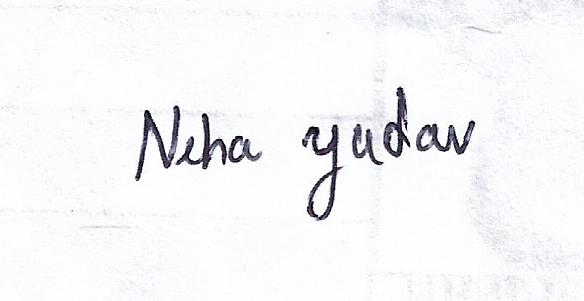 Neha yadav